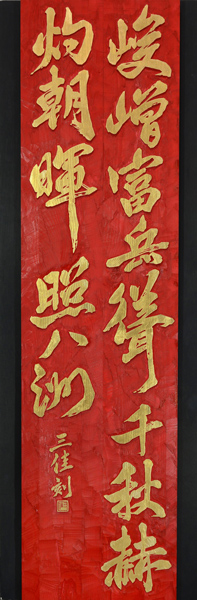 峻嶒富岳聳千秋赫
灼朝暉照八洲
三佳刻